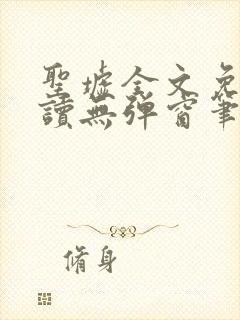 聖墟全文免
讀無彈窗筆
脩身